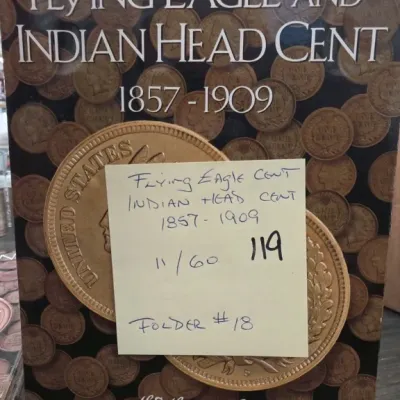 FLYING EAGLE AND
INDIAN HEAD CENT
1857-1909
UNITED STATES
FLYING EAGLE CENT
INDIAN HEAD CENT
1857-1909
11/60
119
FOLDER #18